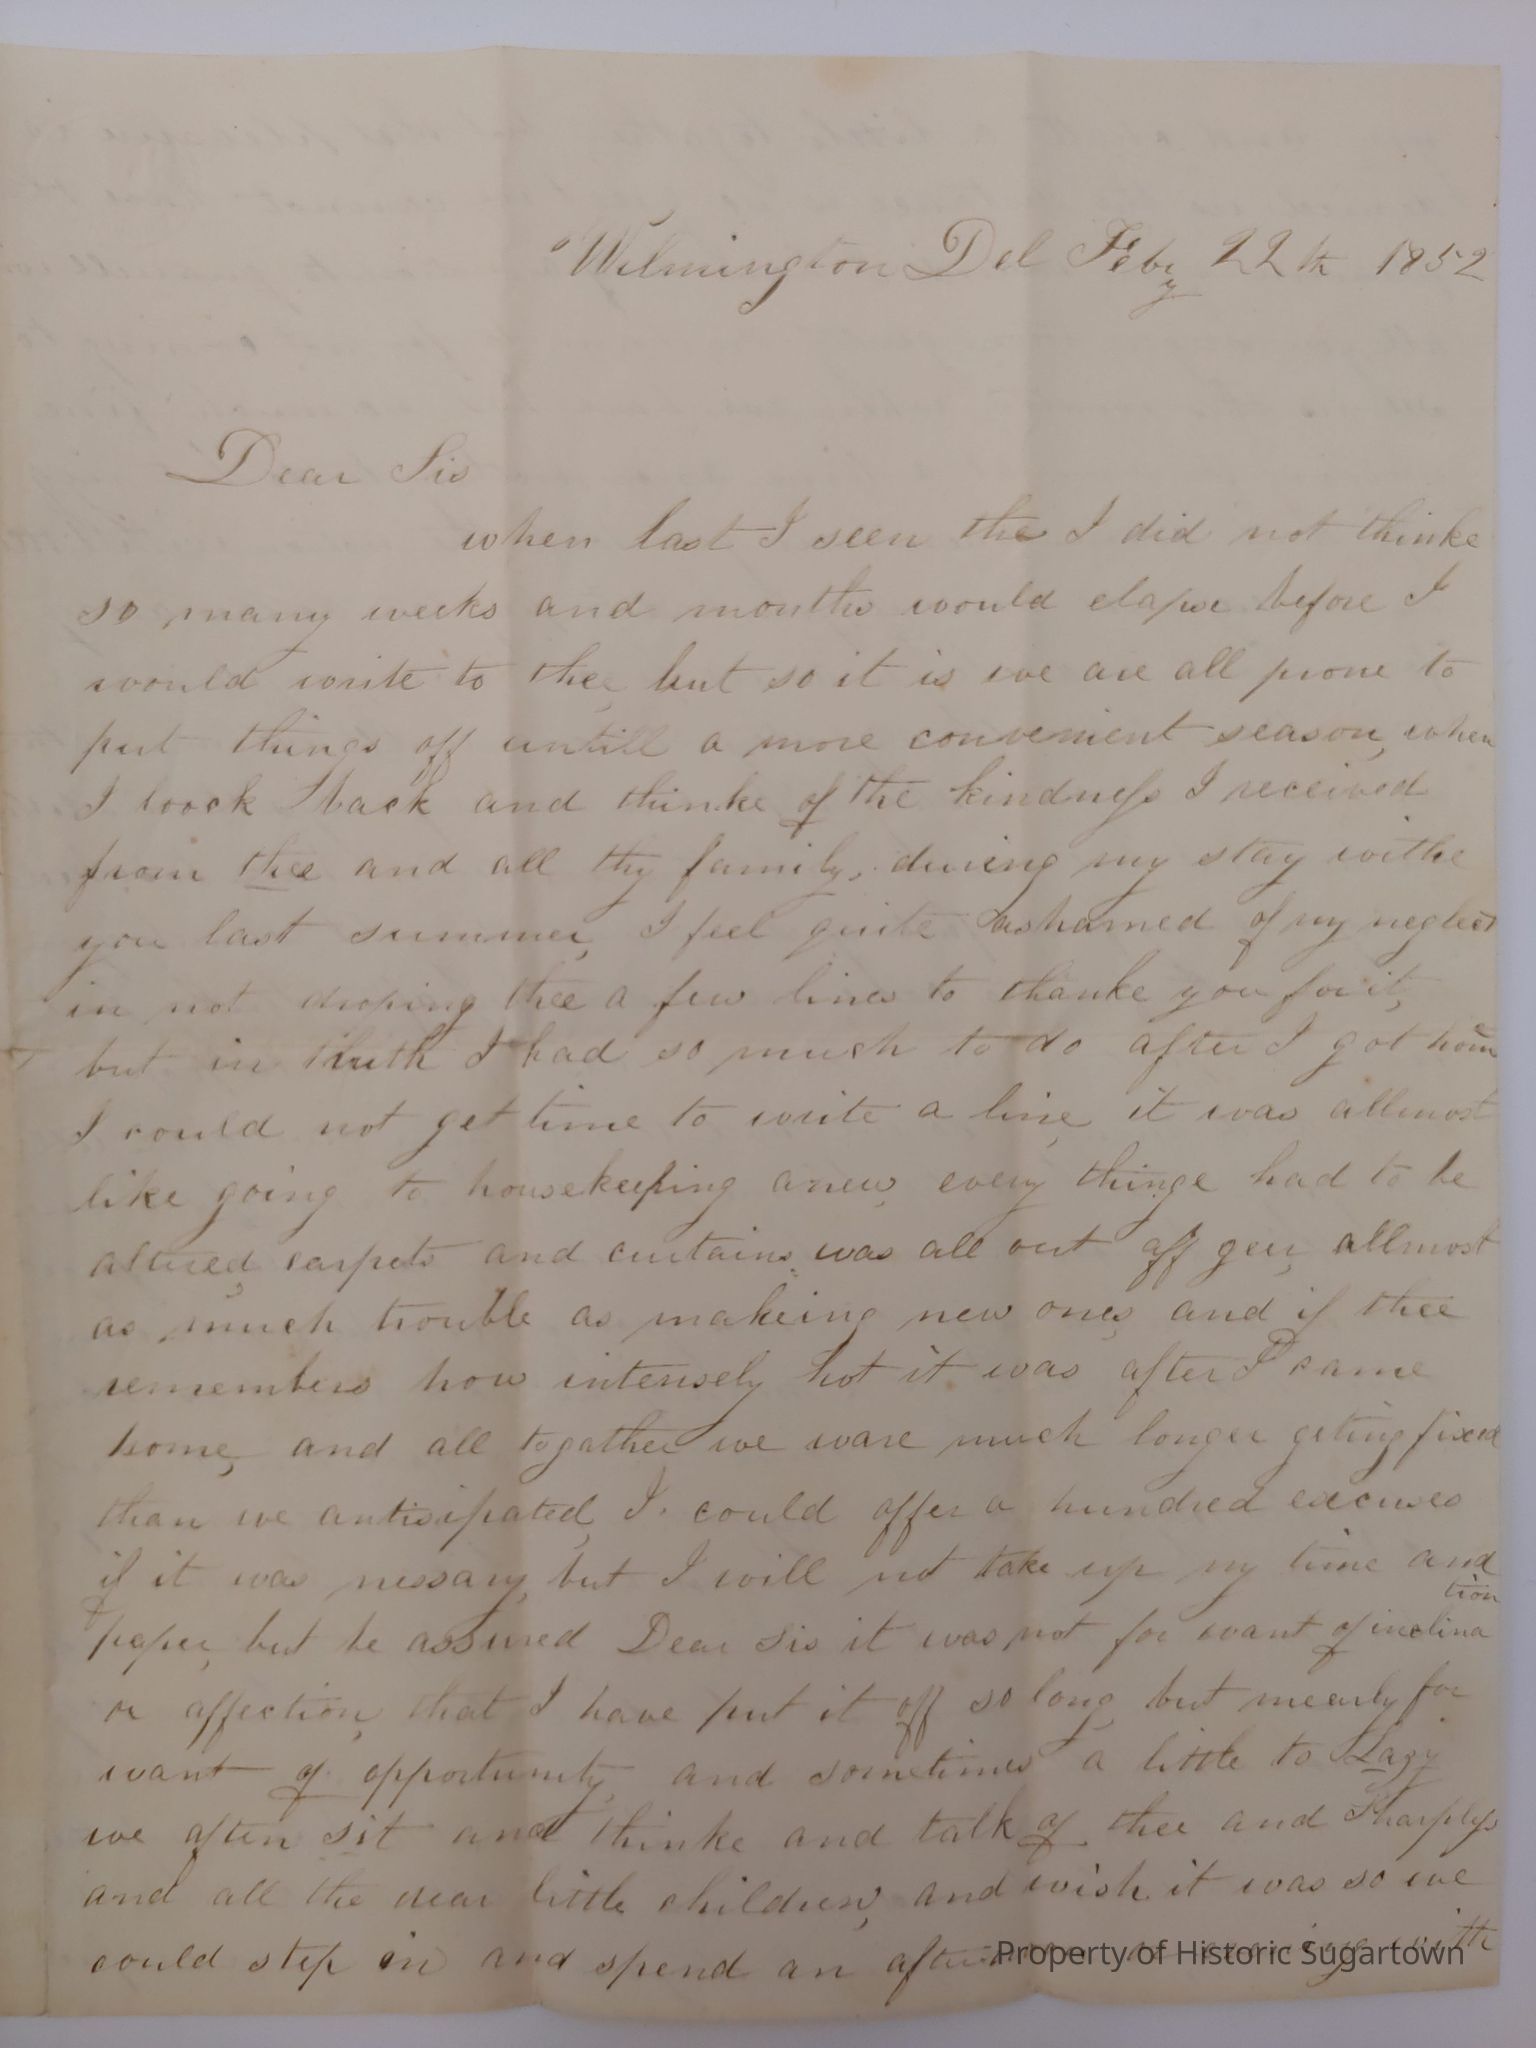 Wilmington Del Feby 22th 1852
Dear Sis
when last I seen the I did not thinke
so many weeks and months would elapse before I
would write to thee, but so it is we are all prone to
put things off untill a more convenient season, when
I loock back and thinke of the kindness I received
from thee and all thy family, during my stay withe
you last summer, I feel quite ashamed of my neglect
in not droping thee a few lines to thanke you for it,
but in truth I had so much to do after I got home
I could not get time to write a line, it was allmost
like going to housekeeping anew, every thinge had to be
altured, carpets and curtains, was all out off geer, allmost
as much trouble as makeing new ones, and if thee
remembers how intensely hot it was after I came
home, and all togather we ware much longer geting fixed
than we antisipated, I could offer a hundred excuses
if it was nessary, but I will not take up my time and
paper, but be assured Dear Sis it was not for want of inclination
or affection, that I have put it off so long, but mearly for
want of opportunity, and sometimes a little to Lazy
we often sit and thinke and talk of thee and Sharpless
and all the dear little children, and wish it was so we
could step in and spend an afternoon or evening with
Property of Historic Sugartown